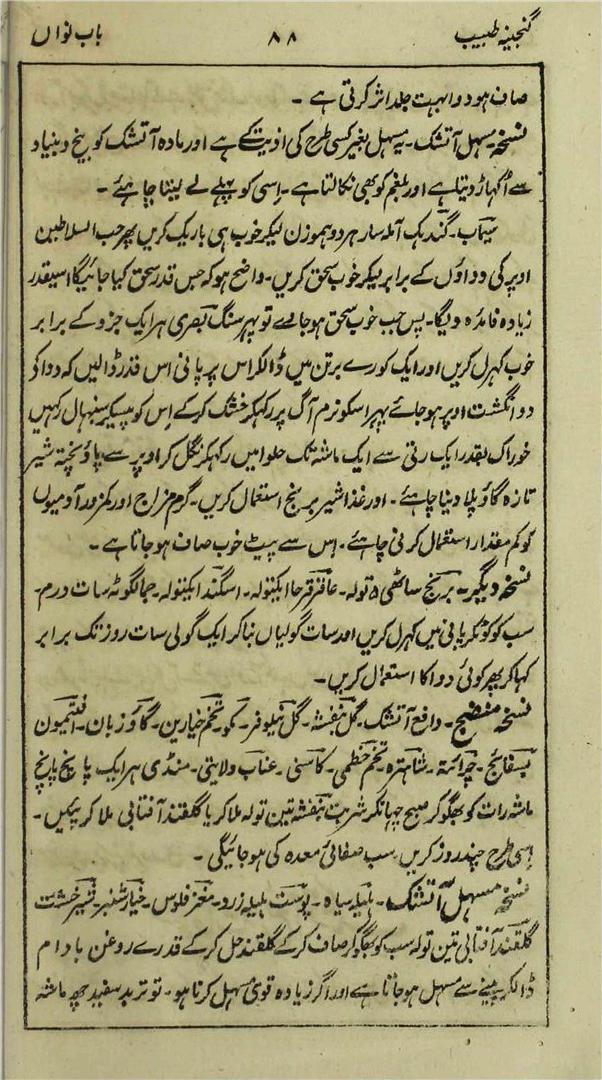 گنجینہ طبیب ۸۸ باب نواں
صاف ہو دوا بہت جلد اثر کرتی ہے ۔
نسخہ مسہل آتشک ۔ یہ مسہل بغیر کسی طرح کی اذیت کے ہے اور مادہ آتشک کو بیخ و بنیاد
سے اُکھاڑ دیتا ہے اور بلغم کو بھی نکالتا ہے ۔ اِسی کو پہلے لے لینا چاہئے ۔
سیماب ۔ گندہک آملہ سار ہر دو ہموزن لیکر خوب ہی باریک کریں پھر حب السلاطین
اوپر کی دواؤں کے برابر لیکر خوب سحق کریں ۔ واضح ہو کہ جس قدر سحق کیا جائیگا اسیقدر
زیادہ فائدہ دیگا ۔ پس جب خوب سحق ہو جاوے تو پہر سنگ بصری ہر ایک جزو کے برابر
خوب کہرل کریں اور ایک کورے برتن میں ڈالکر اس پر پانی اس قدر ڈالیں کہ دوا کے
دو انگشت اوپر ہو جائے پہر اسکو نرم آگ پر رکہکر خشک کر کے اِس کو پیسکر سنبہال رکہیں
خوراک بقدر ایک رتی سے ایک ماشہ تک حلوا میں رکہکر نگل کر اوپر سے پاؤ پختہ شیر
تازہ گاؤ پلا دینا چاہئے ۔ اور غذا شیر برنج استعمال کریں ۔ گرم مزاج اور کمزور آدمیوں
کو کم مقدار استعمال کرنی چاہئے ۔ اس سے پیٹ خوب صاف ہو جاتا ہے ۔
نسخہ دیگر ۔ برنج ساٹھی ۵ تولہ ۔ عاقرقرحا ایکتولہ ۔ اسگند ایکتولہ ۔ جمالگوٹہ سات درم ۔
سب کو کوٹکر پانی میں کہرل کریں اور سات گولیاں بنا کر ایک گولی سات روز تک برابر
کہا کر پھر کوئی دوا کا استعمال کریں ۔
نسخہ منضج ۔ دافع آتشک ۔ گل بنفشہ ۔ گل نیلوفر ۔ مکو ۔ تخم خیارین ۔ گاؤ زبان ۔ افتیمون
بسفائج ۔ چرائتہ ۔ شاہترہ ۔ تخم خطمی ۔ کاسنی ۔ عناب ولایتی ۔ منڈی ہر ایک پانچ پانچ
ماشہ رات کو بھگو کر صبح چہانکر شربت بنفشہ تین تولہ ملا کر یا گلقند آفتابی ملا کر پئیں ۔
اِسی طرح چند روز کریں سب صفائی معدہ کی ہو جائیگی ۔
نسخہ مسہل آتشک ۔ ہلیلہ سیاہ ۔ پوست ہلیلہ زرد ۔ مغز فلوس ۔ خیار شنبر ۔ شیر خشت
گلقند آفتابی تین تولہ سب کو بھگو کر صاف کر کے گلقند حل کر کے قدرے روغن بادام
ڈالکر پینے سے مسہل ہو جاتا ہے اور اگر زیادہ قوی مسہل کرنا ہو ۔ تو تربد سفید چھ ماشہ